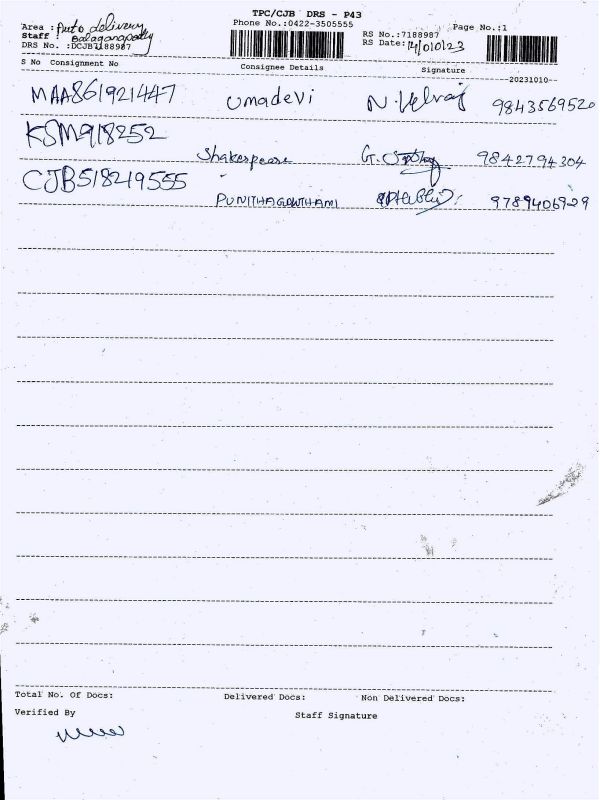 TPC/CJB DRS - P43
Phone No.:0422-3505555
Page No.:1
Area : Auto delivery
Staff : Balaganapathy
DRS No. :DCJB7188987
RS No.:7188987
RS Date:
S No Consignment No Consignee Details Signature
--20231010--
MAA861921447 Umadevi N. Velraj 9843569520
KSM918252
Shakespeare G. 9842794304
CJB518219555
PUNITHAGOWTHAMI 9789406929
Total No. Of Docs: Delivered Docs: Non Delivered Docs:
Verified By Staff Signature